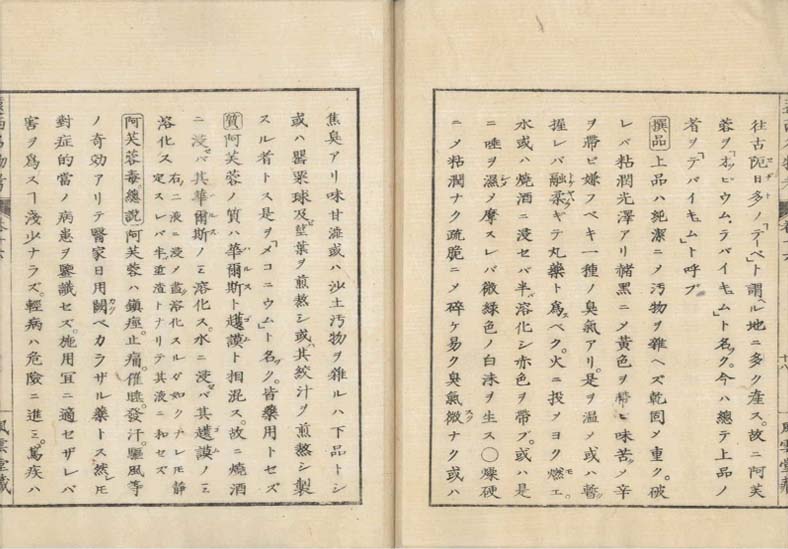 往古阨日多ノ「テーベ」ト謂ヘル地ニ多ク産ス。故ニ阿芙
蓉ヲ「オッピウム、テバイキュム」ト名ク。今ハ總テ上品ノ
者ヲ「テバイキュム」ト呼ブ
撰品 上品ハ純潔ニメ汚物ヲ雜ヘズ乾固メ重ク。破
レバ粘潤光澤アリ赭黒ニメ黄色ヲ帶ビ味苦メ辛
ヲ帶ビ嫌フベキ一種ノ臭氣アリ。是ヲ温メ或ハ暫
握レバ融柔ギテ丸藥ト爲スベク。火ニ投メヨク燃エ。
水或ハ燒酒ニ浸セバ半溶化シ赤色ヲ帶ブ。或ハ是
ニ唾ヲ濕メ摩スレバ微綠色ノ白沫ヲ生ス〇燥硬
ニメ粘潤ナク疏脆ニメ碎ケ易ク臭氣微ナク或ハ
十八
風雲堂藏
焦臭アリ味甘澁或ハ沙土汚物ヲ雜ルハ下品トシ
或ハ罌粟球及莖葉ヲ煎熬シ或其絞汁ヲ煎熬シ製
スル者トス是ヲ「メコニウム」ト名ク。皆藥用トセズ
質 阿芙蓉ノ質ハ華爾斯ト護謨ト相混ス。故ニ燒酒
ニ浸セバ其華爾斯ノミ溶化ス。水ニ浸セバ其護謨ノミ
溶化ス 右ノ二液ニ浸メ盡溶化スルガ如クナレモ靜
定スレバ半垂渣トナリテ其液ニ和セズ
阿芙蓉毒總説 阿芙蓉ハ鎭痙。止痛。催睡。發汗。驅風等
ノ奇効アリテ醫家日用闕ベカラザル藥トス然レモ
對症的當ノ病患ヲ鑒識セズ。施用宜ニ適セザレバ
害ヲ爲スヿ淺少ナラズ。輕病ハ危險ニ進ミ。篤疾ハ
風雲堂藏